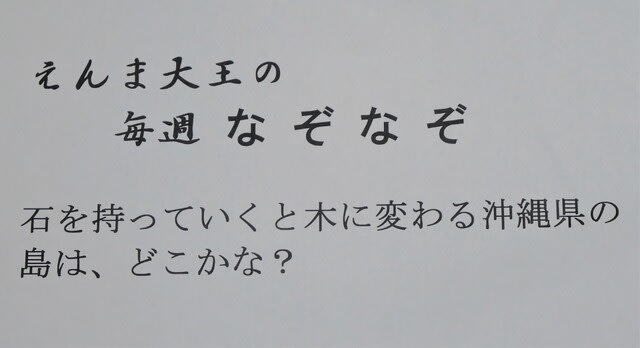 えんま大王の
毎週なぞなぞ
石を持っていくと木に変わる沖縄県の
島は、どこかな？